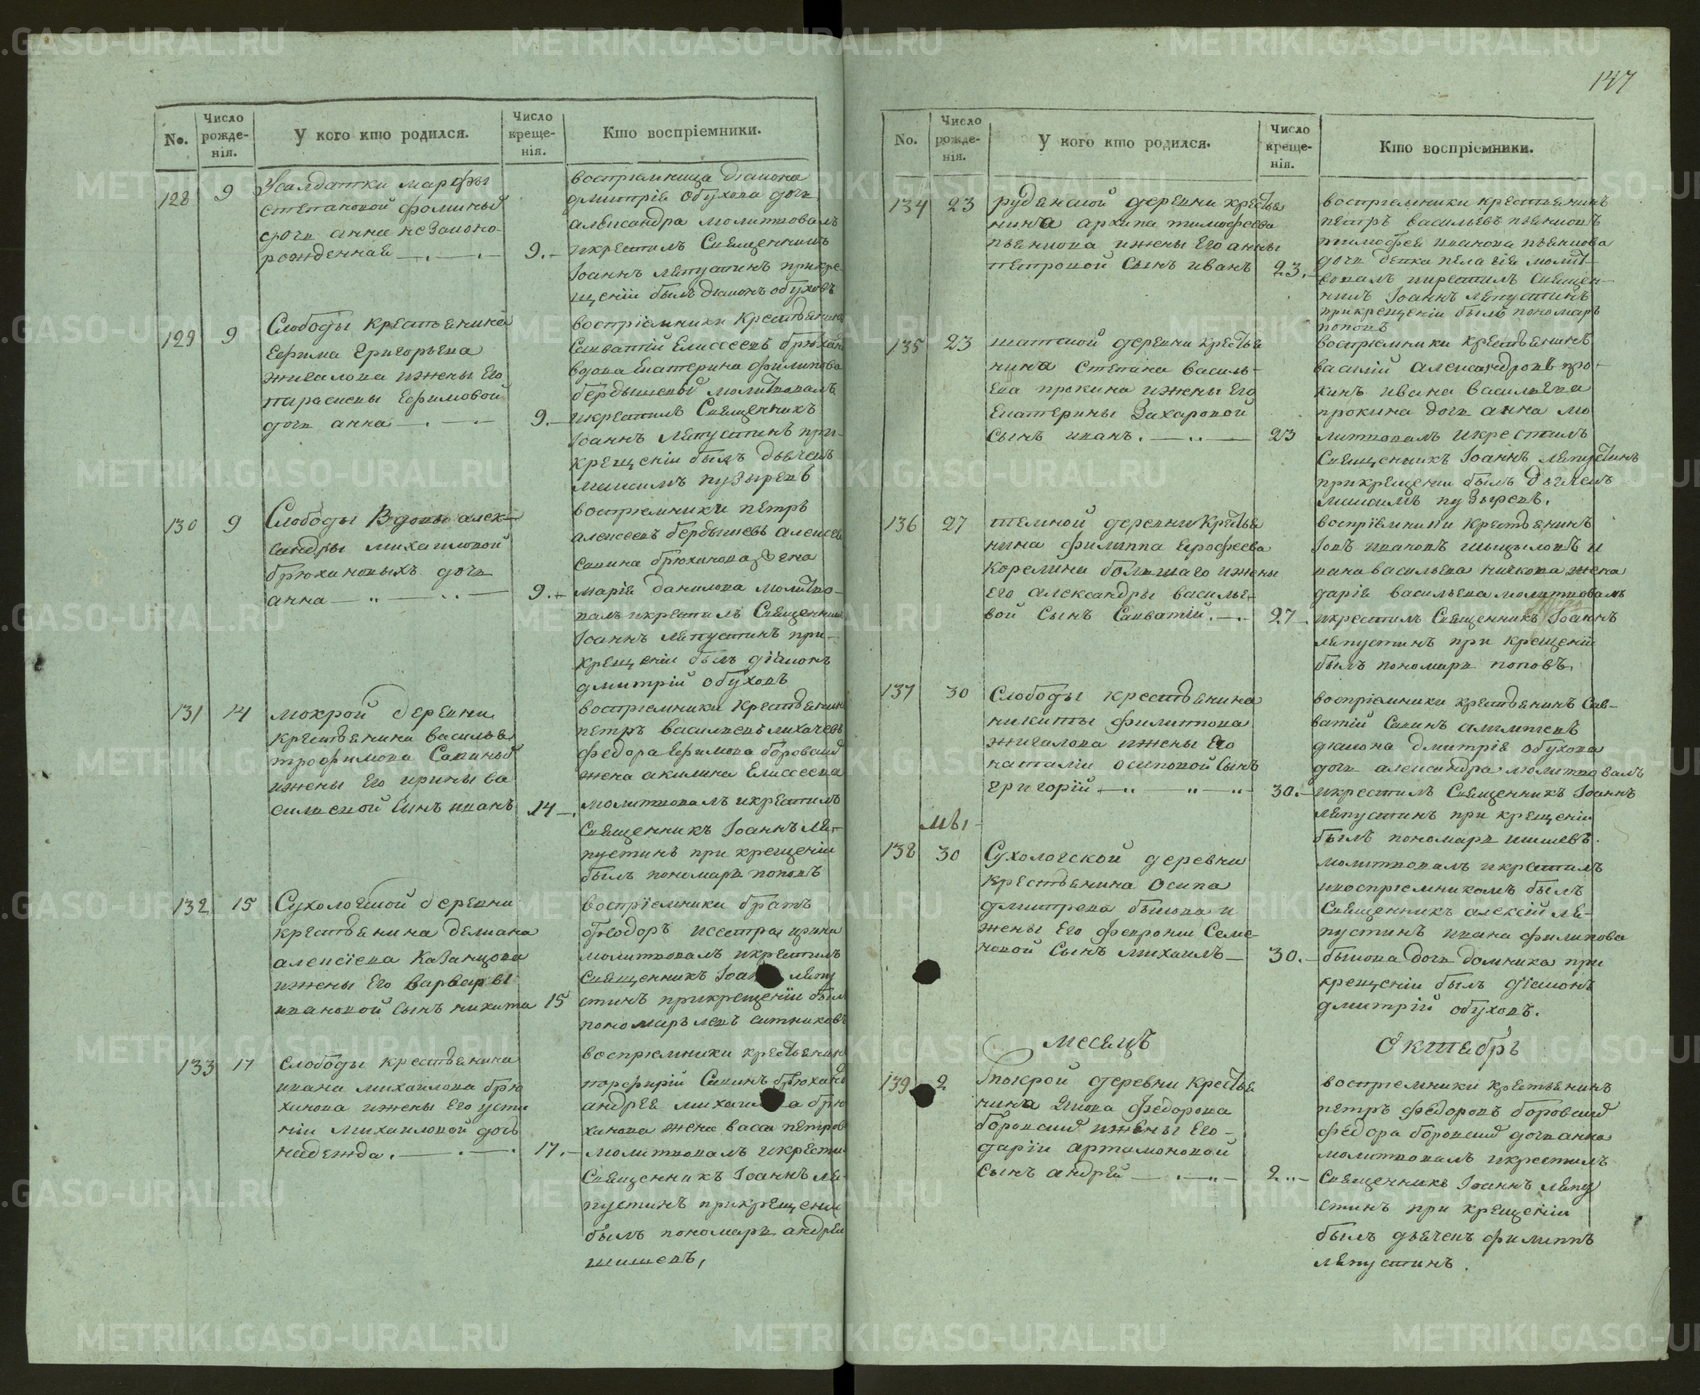 147
No.
Число рожде-нія.
У кого кто родился.
Число креще-нія.
Кто воспріемники.
128
9
Салдатки марфы
степановой фоминых
дочь анна незаконо-
рожденная
9.
воспріемница діакона
дмитрія обухова дочь
александра молитвовалъ
икрестилъ Священникъ
Іоаннъ ляпустинъ прикре-
щеніи былъ діаконъ обуховъ
129
9
Слободы крестьянина
Ефима григорьева
жигалова ижены его
параскевы Ефимовой
дочь анна
9.
воспріемники крестьянинъ
Савватій Елисеевъ
вдова Екатерина филипова
бердышевы молитвовалъ
икрестилъ Священникъ
Іоаннъ ляпустинъ при-
крещеніи былъ дьячекъ
максимъ пузыревъ
130
9
Слободы Вдовы алек-
сандры михаиловой
брюхановыхъ дочь
анна
9.
воспріемники петръ
алексеевъ бердышевъ алексея
савина брюханова жена
марія данилова молитво-
валъ икрестилъ Священникъ
Іоаннъ ляпустинъ при-
крещеніи былъ діаконъ
дмитрій обуховъ
131
14
мокрой деревни
крестьянина василья
трофимова Савиныхъ
ижены его ирины ва
сильевой сынъ иванъ
14
воспріемники крестьянинъ
петръ васильевъ лихачевъ
федора Ефимова боровскихъ
жена акилина Елисеева
молитвовалъ икрестилъ
Священникъ Іоаннъ ля-
пустинъ при крещеніи
былъ пономарь поповъ
132
15
Сухоложской деревни
крестьянина демиана
алексіева Казанцова
ижены его варвары
ивановой сынъ никита
15
воспріемники братъ
Феодоръ исестра ирина
молитвовалъ икрестилъ
Священникъ Іоаннъ ляпу
стинъ прикрещеніи былъ
пономарь левъ ситниковъ
133
17
Слободы крестьянина
ивана михаилова брю
ханова ижены его усти
ніи михаиловой дочь
надежда.
17.
воспріемники крестьянинъ
порфирій Савинъ брюхановъ
андрея михаилова брю
ханова жена васса петрова
молитвовалъ икрестилъ
Священникъ Іоаннъ ля-
пустинъ прикрещеніи
былъ пономарь андрей
шишевъ,
No.
Число рожде-нія.
У кого кто родился.
Число креще-нія.
Кто воспріемники.
134
23
руденской деревни кресть
нина архипа тимофеева
пьянкова ижены его анны
петровой Сынъ иванъ
23.
воспріемники крестьянинъ
петръ васильевъ пьянковъ
тимофея иванова пьянкова
дочь девка пелагія молит-
вовалъ икрестилъ Священ-
никъ Іоаннъ ляпустинъ
прикрещеніи былъ пономарь
поповъ
135
23
шатской деревни кресть
нина степана василь-
ева прокина ижены его
Екатерины Захаровой
Сынъ иванъ.
23
воспріемники крестьянинъ
василій александровъ про-
кинъ ивана васильева
прокина дочь анна мо
литвовалъ икрестилъ
Священникъ Іоаннъ ляпустинъ
прикрещеніи былъ дьячекъ
максимъ пузыревъ.
136
27
темной деревни Крестья
нина филиппа Ерофеева
Корелина большаго ижены
его александры василье-
вой Сынъ Савватій.
27
воспріемники крестьянинъ
Іовъ ивановъ шыцыловъ и
ивана васильева жена
дарія васильева молитвовалъ
икрестилъ Священникъ Іоаннъ
ляпустинъ при крещеніи
былъ пономарь поповъ.
137
30
Слободы крестьянина
никиты филипова
жигалова ижены его
наталіи осиповой Сынъ
григорій
30.
воспріемники крестьянинъ Сав-
ватій Савинъ
діакона дмитрія обухова
дочь александра молитвовалъ
икрестилъ Священникъ Іоаннъ
ляпустинъ при крещеніи
былъ пономарь шишевъ.
138
30
Сухоложской деревни
крестьянина осипа
дмитрева быкова и
жены его февроніи Семе-
новой Сынъ михаилъ
30.
молитвовалъ икрестилъ
ивоспріемникомъ былъ
Священникъ алексій ля-
пустинъ ивана филипова
быкова дочь домника при
крещеніи былъ діаконъ
дмитрій обуховъ.
месецъ
Октябрь
139
2
мокрой деревни кресть
нина Якова федорова
боровскихъ ижены его
даріи артамоновой
Сынъ андрей
2
воспріемники крестьянинъ
петръ федоровъ боровскихъ
федора боровскихъ дочь анна
молитвовалъ икрестилъ
Священникъ Іоаннъ ляпу
стинъ при крещеніи
былъ дьячекъ филиппъ
ляпустинъ.